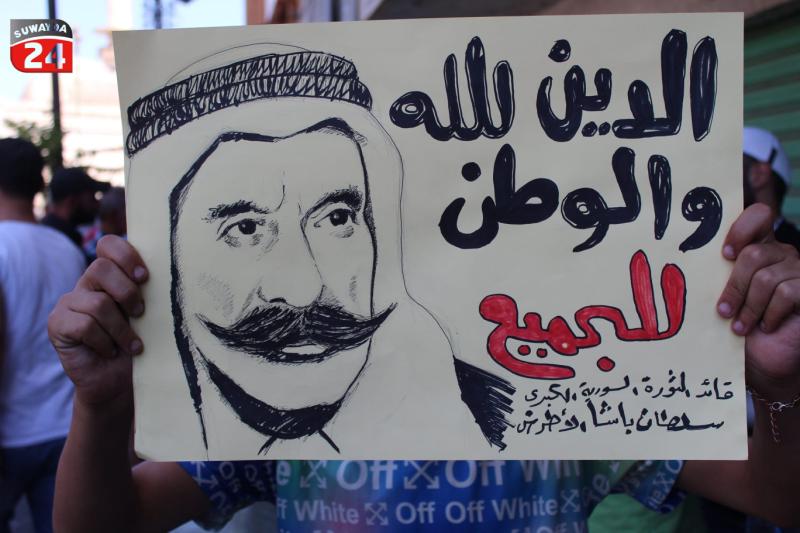 SUWAYDA
24
الدين لله
والوطن
للجميع
قائد الثورة السورية الكبرى
سلطان باشا الأطرش
Off Off White
Off White Off Off White